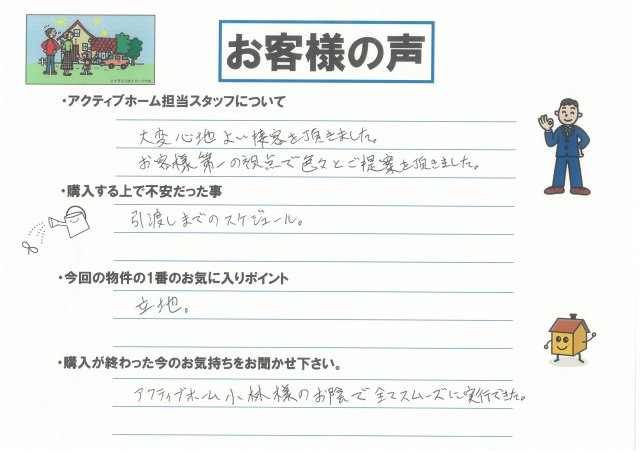 お客様の声
・アクティブホーム担当スタッフについて
大変心地よい接客を頂きました。
お客様第一の視点で色々とご提案を頂きました。
・購入する上で不安だった事
引渡しまでのスケジュール。
・今回の物件の1番のお気に入りポイント
立地。
・購入が終わった今のお気持ちをお聞かせ下さい。
アクティブホーム小林様のお陰で全てスムーズに実行できた。